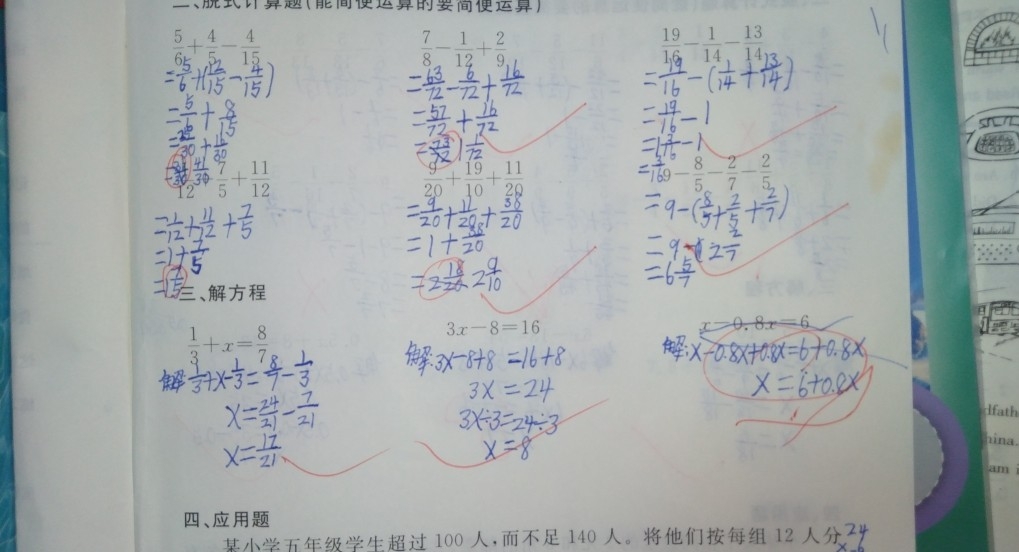 二、脱式计算题(能简便运算的要简便运算)
5/6+4/5-4/15
=5/6+(12/15-4/15)
=5/6+8/15
=25/30+16/30
=41/30
7/8-1/12+2/9
=63/72-6/72+16/72
=57/72+16/72
=73/72 1 1/72
19/16-1/14-13/14
=19/16-(1/14+13/14)
=19/16-1
=1 3/16-1
=3/16
1/12+7/5+11/12
=1/12+11/12+7/5
=1+7/5
9/20+19/10+11/20
=9/20+11/20+38/20
=1+38/20
=2 18/20 2 9/10
9-8/5-2/7-2/5
=9-(8/5+2/5+2/7)
=9-2 2/7
=6 5/7
三、解方程
1/3+x=8/7
解:1/3+x-1/3=8/7-1/3
x=24/21-7/21
x=17/21
3x-8=16
解:3x-8+8=16+8
3x=24
3x÷3=24÷3
x=8
x-0.8x=6
解:x-0.8x+0.8x=6+0.8x
x=6+0.8x
四、应用题
某小学五年级学生超过 100 人,而不足 140 人。将他们按每组 12 人分
24
dfath
hina.
am i